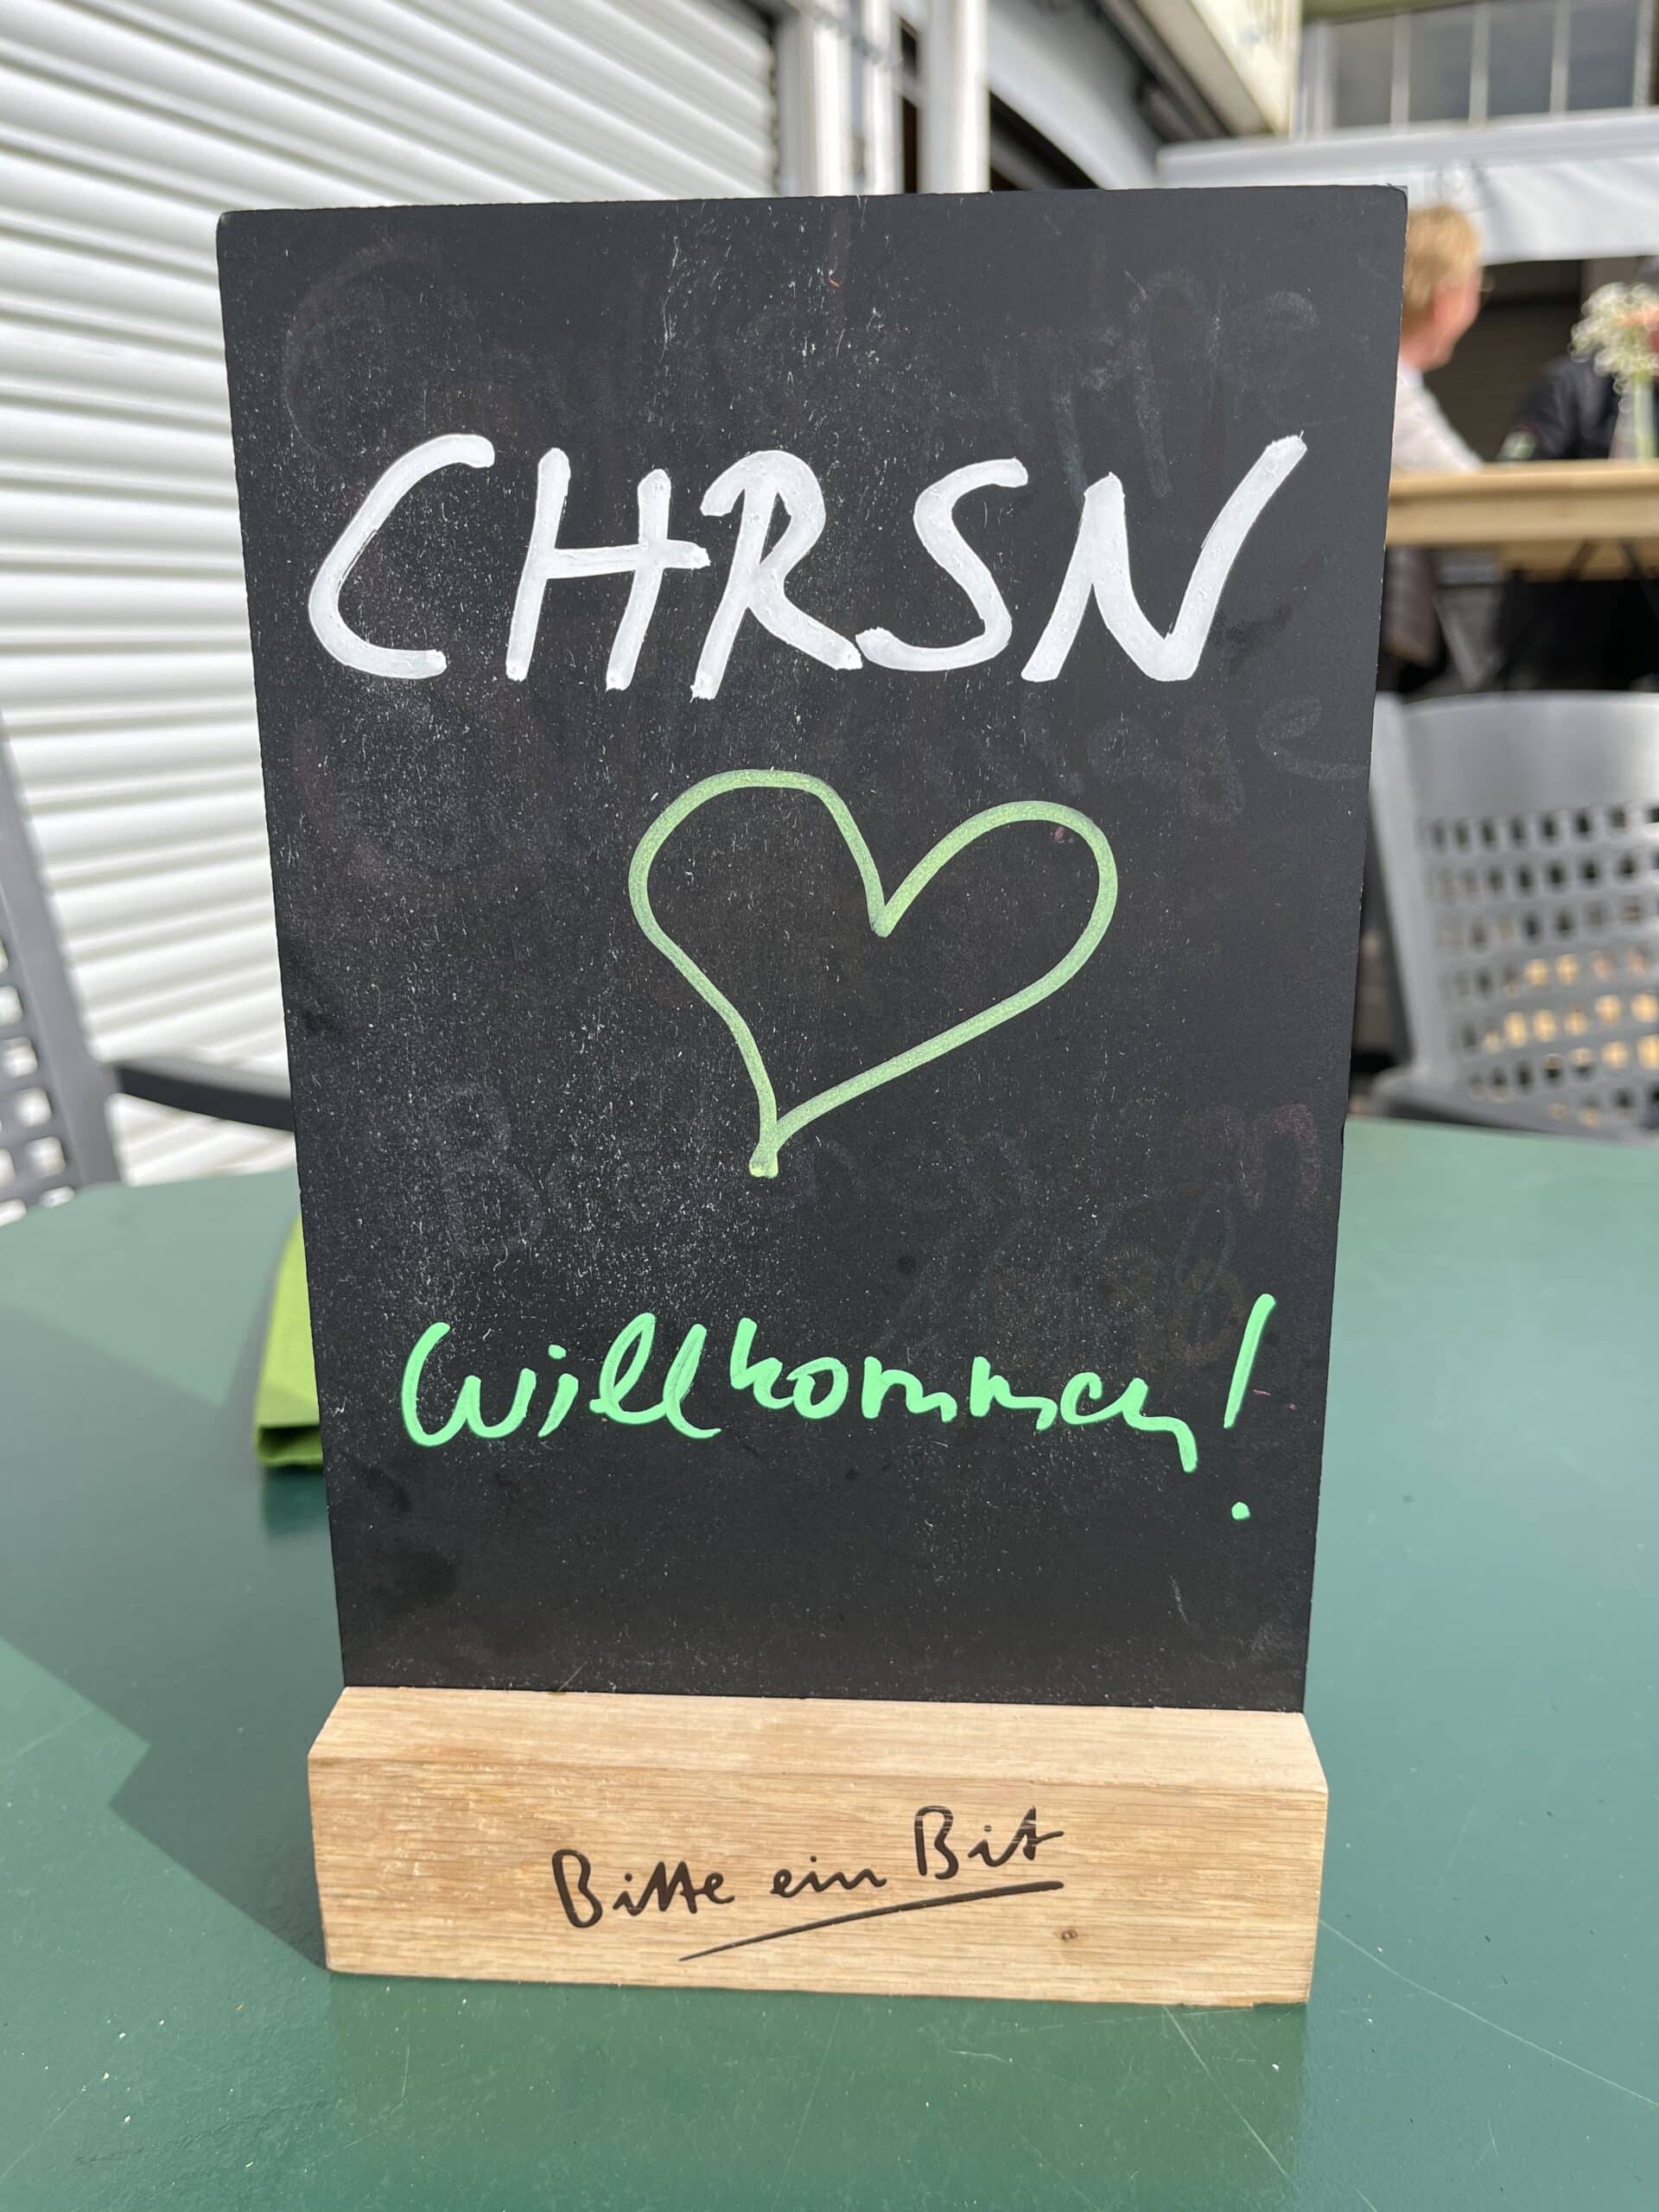 CHRSN
Willkommen!
Bitte ein Bit